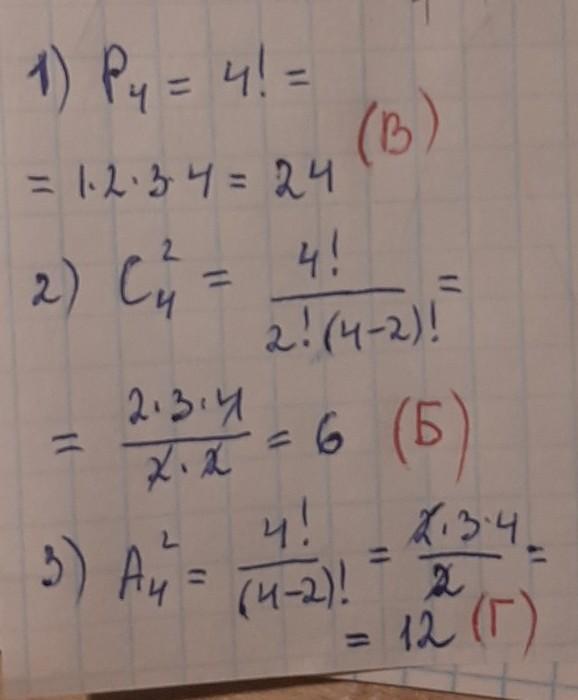 1) P₄ = 4! =
= 1·2·3·4 = 24 (В)
2) C₄² = 4! / 2!(4-2)! =
= 2·3·4 / 2·2 = 6 (Б)
3) A₄² = 4! / (4-2)! = 2·3·4 / 2 =
= 12 (Г)